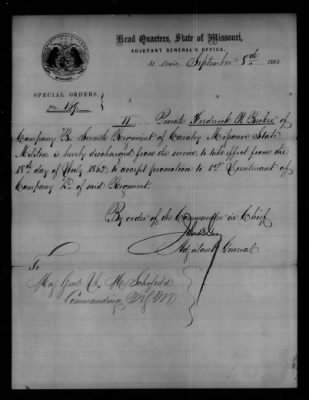 Head Quarters, State of Missouri,
ADJUTANT GENERAL'S OFFICE,
St. Louis, September 8th 1863
SPECIAL ORDERS,
No. 159.
II Private Frederick H.
Company B. Seventh Regiment of Cavalry Missouri State
Militia is hereby discharged from the service to take effect from the
18th day of July 1863, to accept promotion to 1st Lieutenant of
Company D. of said Regiment.
By order of the Commander in Chief
Adjutant General
To
Maj Genl J. M. Schofield
Commanding